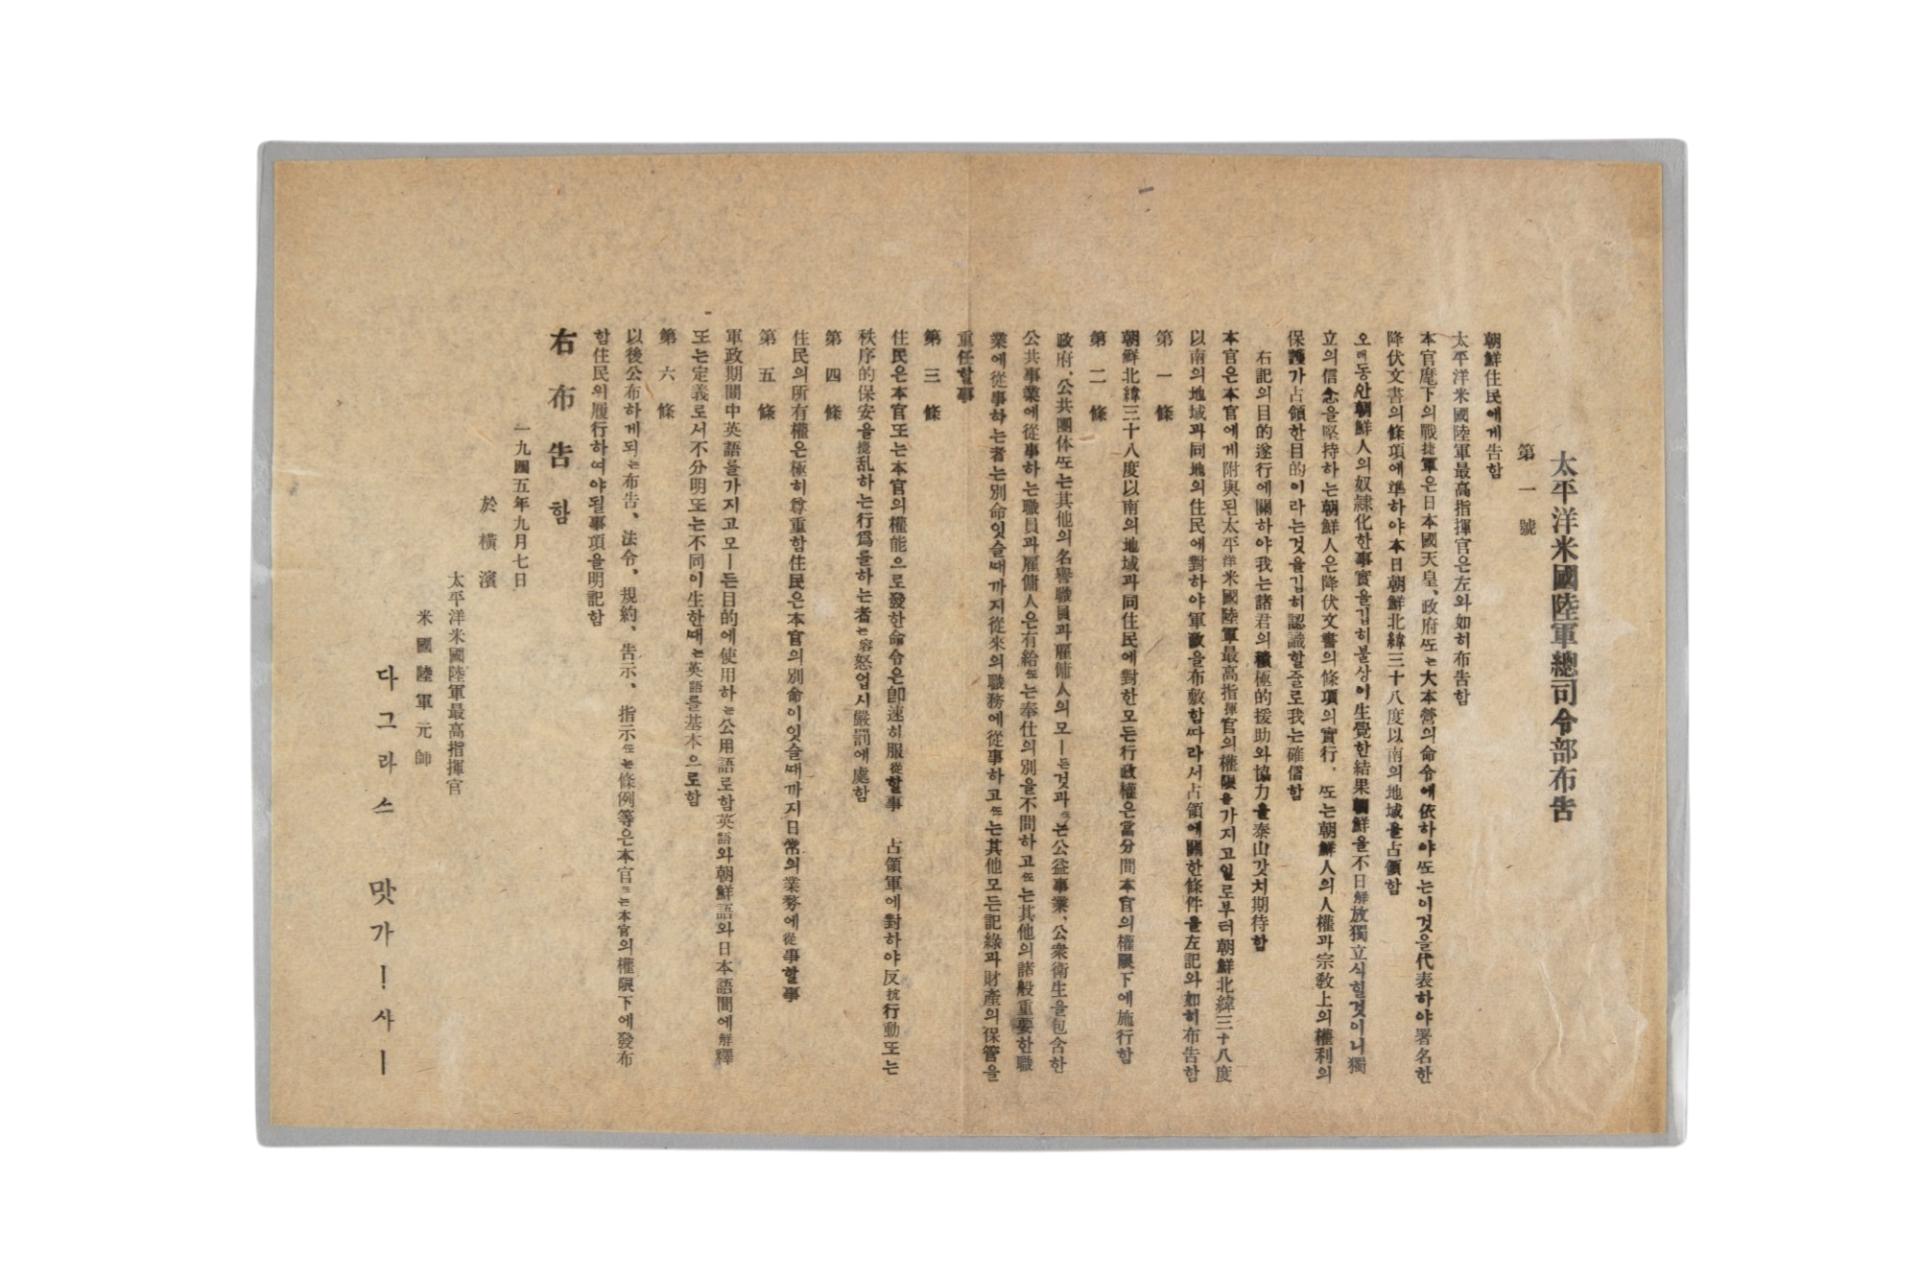 太平洋米國陸軍總司令部布告
第一號
朝鮮住民에게告함
太平洋米國陸軍最高指揮官은左와如히布告함
本官麾下의戰捷軍은日本國天皇、政府또는大本營의命令에依하야또는이것을代表하야署名한
降伏文書의條項에準하야本日朝鮮北緯三十八度以南의地域을占領함
오랜동안朝鮮人의奴隷化한事實을깁히불상이生覺한結果朝鮮을不日解放獨立식힐것이니獨
立의信念을堅持하는朝鮮人은降伏文書의條項의實行、또는朝鮮人의人權과宗敎上의權利의
保護가占領한目的이라는것을깁히認識할줄로我는確信함
右記의目的遂行에關하야我는諸君의積極的援助와協力을泰山갓치期待함
本官은本官에게附與된太平洋米國陸軍最高指揮官의權限을가지고일로부터朝鮮北緯三十八度
以南의地域과同地의住民에對하야軍政을布敷함따라서占領에關한條件을左記와如히布告함
第一條
朝鮮北緯三十八度以南의地域과同住民에對한모든行政權은當分間本官의權限下에施行함
第二條
政府、公共團体또는其他의名譽職員과雇傭人의모ー든것과또는公益事業、公衆衛生을包含한
公共事業에從事하는職員과雇傭人은有給또는奉仕의別을不問하고또는其他의諸般重要한職
業에從事하는者는別命잇슬때까지從來의職務에從事하고또는其他모든記錄과財產의保管을
重任할事
第三條
住民은本官또는本官의權能으로發한命令은卽速히服從할事 占領軍에對하야反抗行動또는
秩序的保安을攪乱하는行爲를하는者는容恕업시嚴罰에處함
第四條
住民의所有權은極히尊重함住民은本官의別命이잇슬때까지日常의業務에從事할事
第五條
軍政期間中英語를가지고모ー든目的에使用하는公用語로함英語와朝鮮語와日本語間에解釋
또는定義로서不分明또는不同이生한때는英語를基本으로함
第六條
以後公布하게되는布告、法令、規約、告示、指示또는條例等은本官또는本官의權限下에發布
함住民의履行하여야될事項을明記함
右布告함
一九四五年九月七日
於橫濱
太平洋米國陸軍最高指揮官
米國陸軍元帥
다그라스 맛가ー사ー